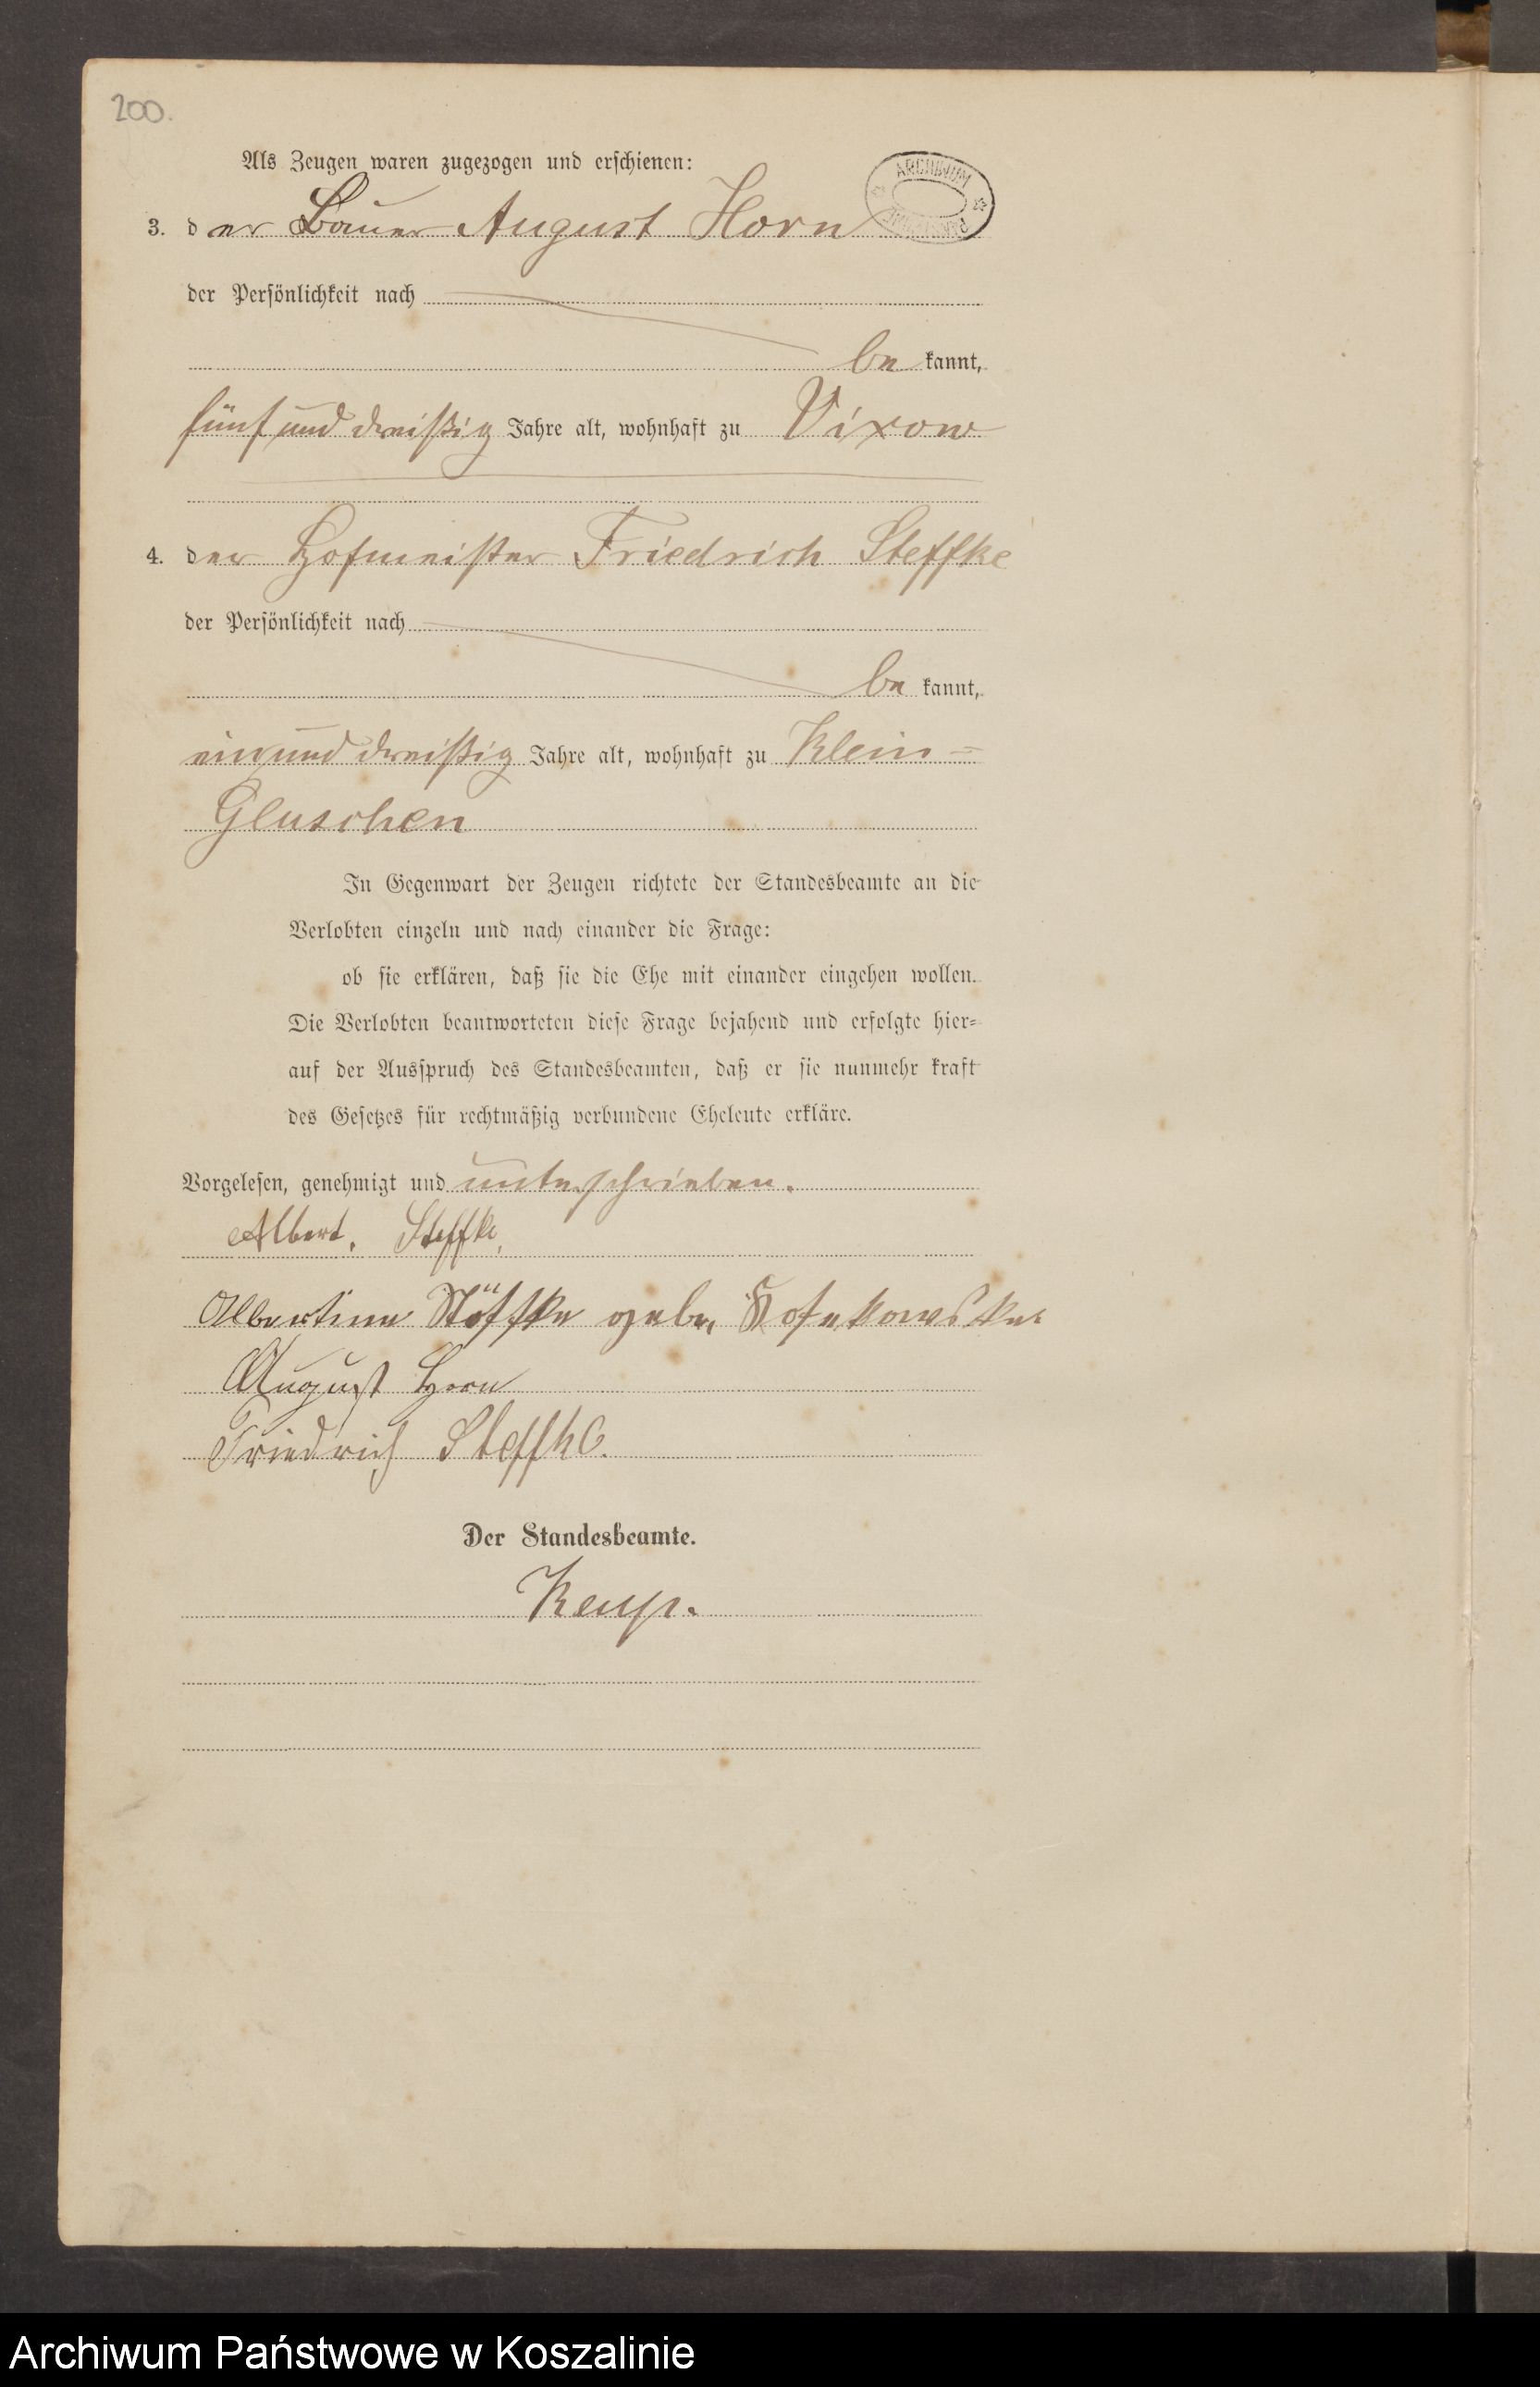 200.
Als Zeugen waren zugezogen und erschienen:
ARCHIWUM
3. der Bauer August Horn
der Persönlichkeit nach
be kannt,
fünf und dreißig Jahre alt, wohnhaft zu Vixow
4. der Hofmeister Friedrich Steffke
der Persönlichkeit nach
be kannt,
ein und dreißig Jahre alt, wohnhaft zu Klein=
Gluschen
In Gegenwart der Zeugen richtete der Standesbeamte an die
Verlobten einzeln und nach einander die Frage:
ob sie erklären, daß sie die Ehe mit einander eingehen wollen.
Die Verlobten beantworteten diese Frage bejahend und erfolgte hier=
auf der Ausspruch des Standesbeamten, daß er sie nunmehr kraft
des Gesetzes für rechtmäßig verbundene Eheleute erkläre.
Vorgelesen, genehmigt und unterschrieben.
Albert. Steffke,
Albertine Stöffke geb.
August Horn
Friedrich Steffke.
Der Standesbeamte.
Archiwum Państwowe w Koszalinie